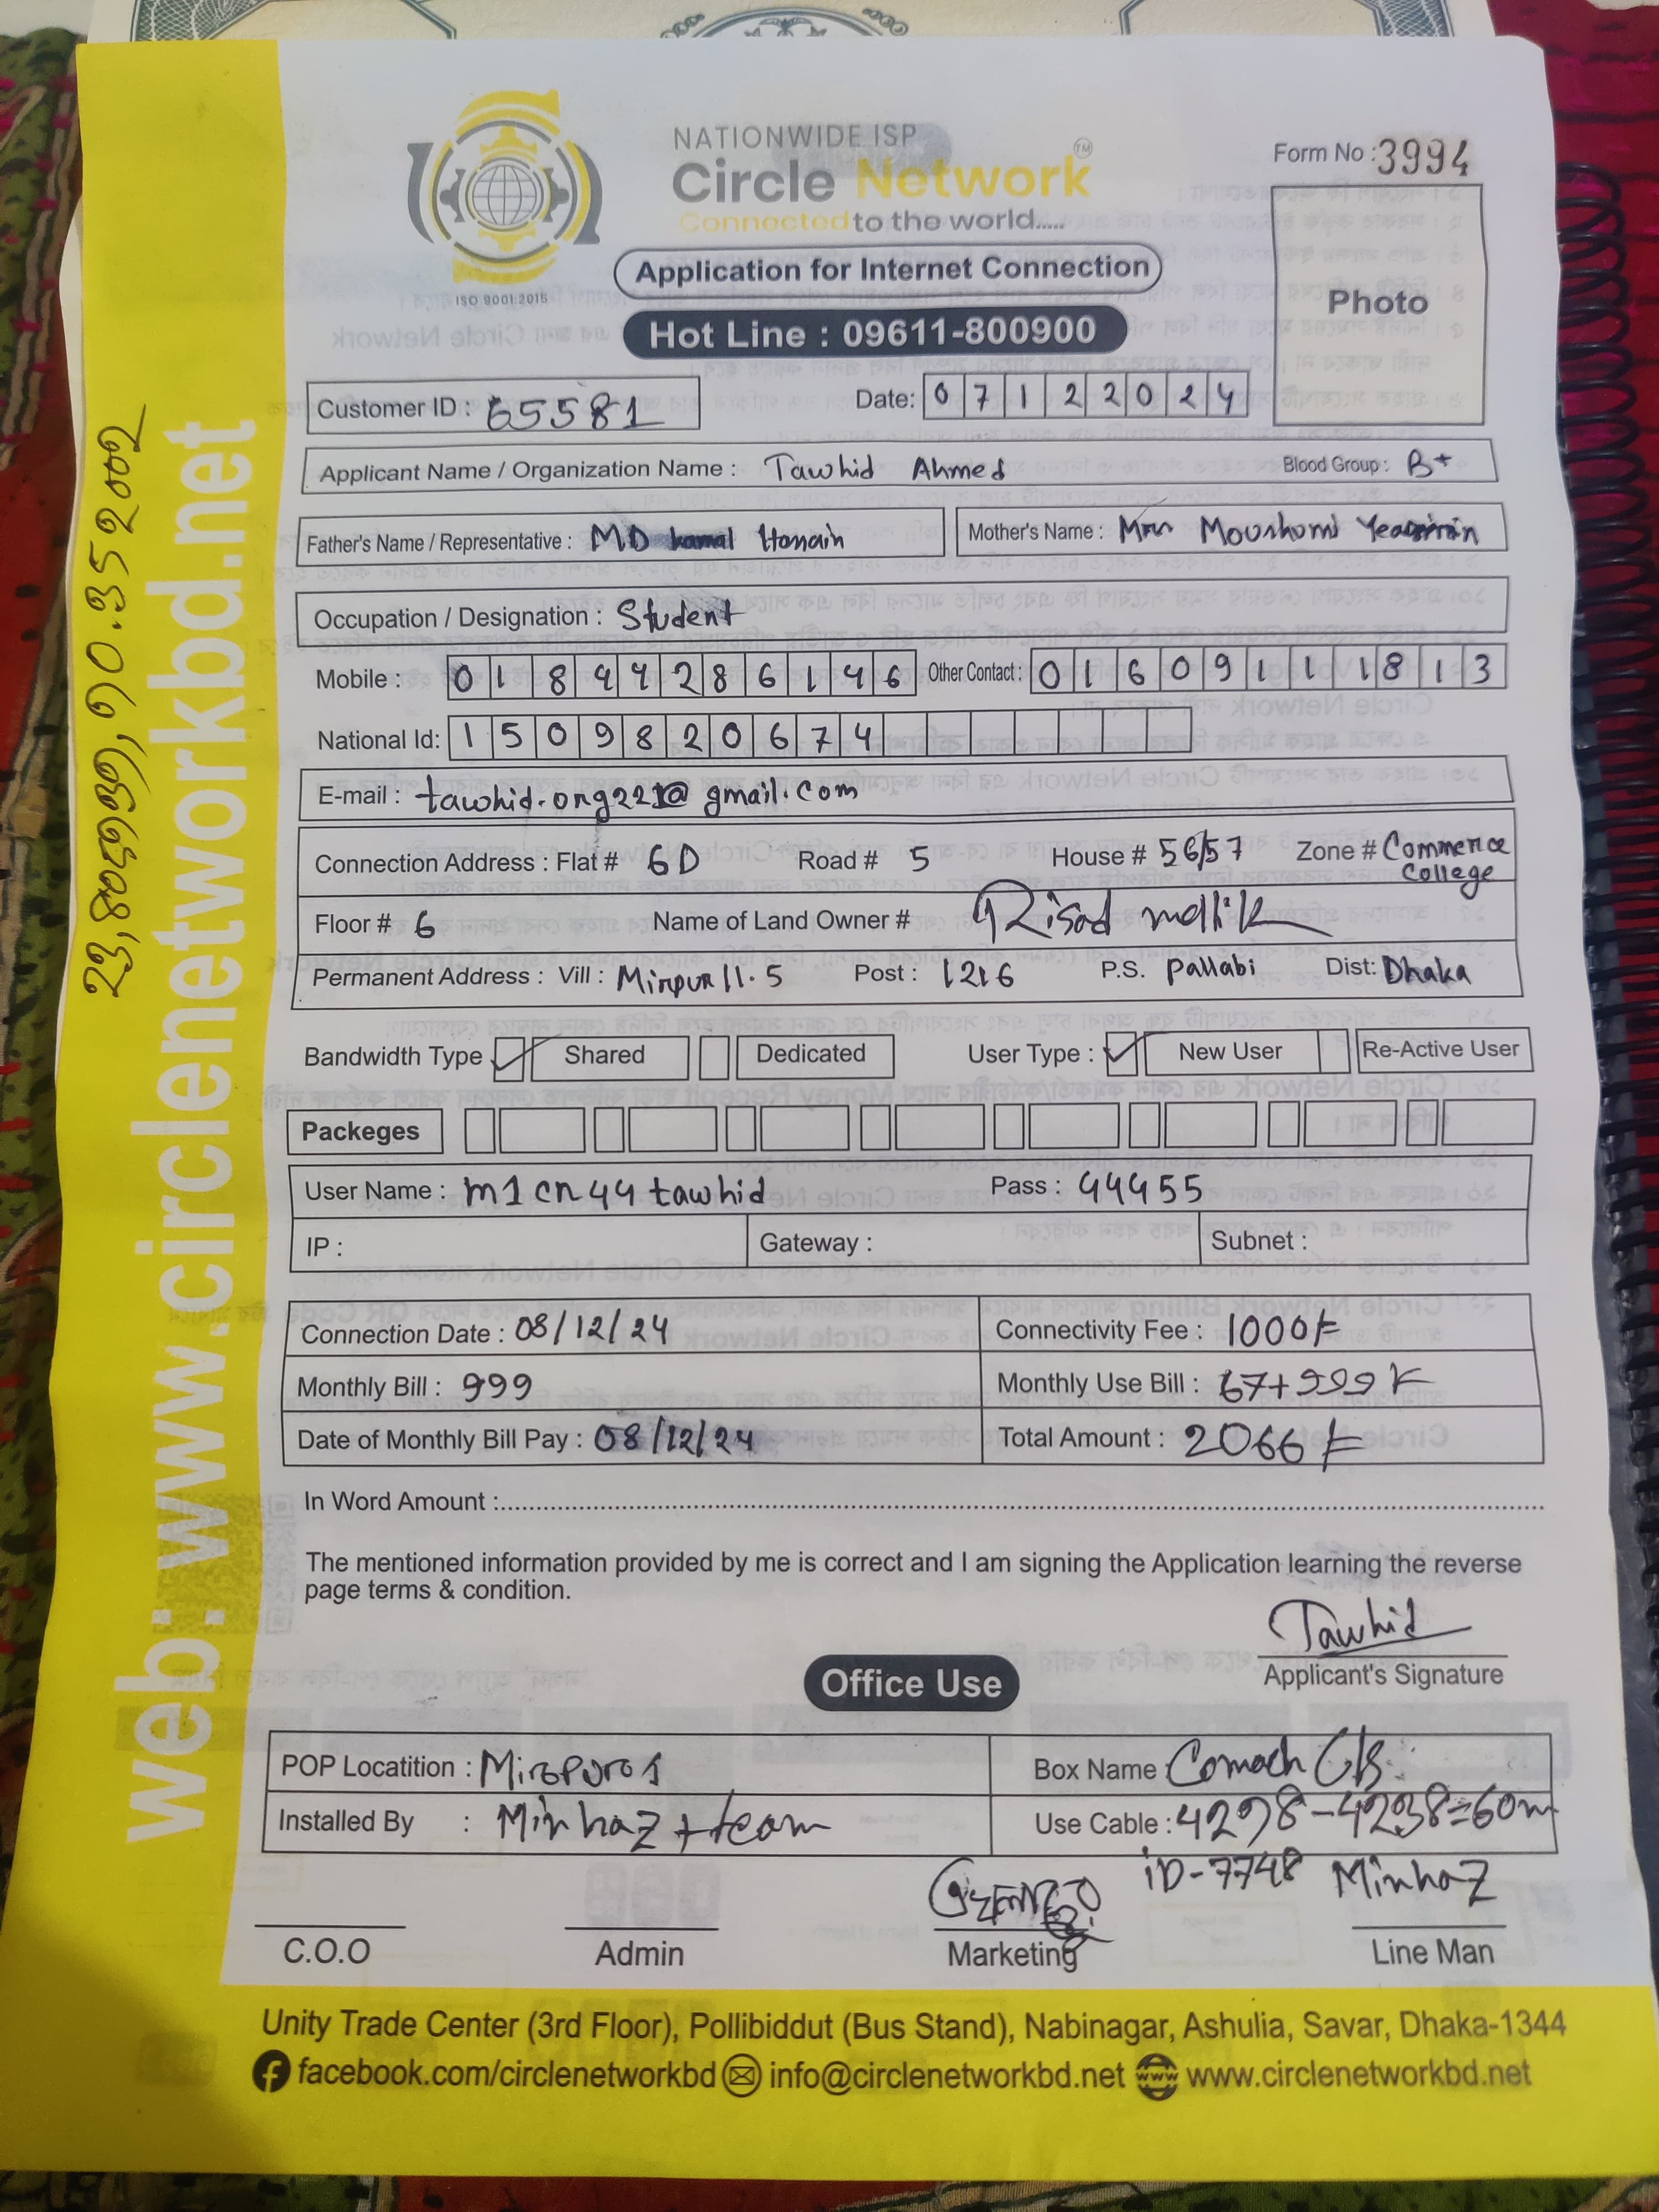 NATIONWIDE ISP
Circle Network ™
Connected to the world.....
ISO 9001:2015
Form No : 3994
Photo
Application for Internet Connection
Hot Line : 09611-800900
Customer ID : 65581
Date: 07122024
Applicant Name / Organization Name : Tawhid Ahmed Blood Group : B+
Father's Name / Representative : MD kamal Hossain Mother's Name : Moushomi
Occupation / Designation : Student
Mobile : 01844286146 Other Contact : 01609111813
National Id: 1509820674
E-mail : tawhid.org221@gmail.com
Connection Address : Flat # 6D Road # 5 House # 56/57 Zone # Commerce College
Floor # 6 Name of Land Owner # Risad mallik
Permanent Address : Vill : Mirpur 11.5 Post : 1216 P.S. Pallabi Dist: Dhaka
Bandwidth Type ✓ Shared Dedicated User Type : ✓ New User Re-Active User
Packeges
User Name : m1cn44tawhid Pass : 44455
IP : Gateway : Subnet :
Connection Date : 08/12/24 Connectivity Fee : 1000/=
Monthly Bill : 999 Monthly Use Bill : 67+999/=
Date of Monthly Bill Pay : 08/12/24 Total Amount : 2066/=
In Word Amount :
The mentioned information provided by me is correct and I am signing the Application learning the reverse
page terms & condition.
Tawhid
Applicant's Signature
Office Use
POP Locatition : Mirpur 1 Box Name :
Installed By : Minhaz + team Use Cable : 4298-4238=60m
iD-7748 Minhaz
C.O.O Admin Marketing Line Man
Unity Trade Center (3rd Floor), Pollibiddut (Bus Stand), Nabinagar, Ashulia, Savar, Dhaka-1344
facebook.com/circlenetworkbd info@circlenetworkbd.net www.circlenetworkbd.net
web: www.circlenetworkbd.net